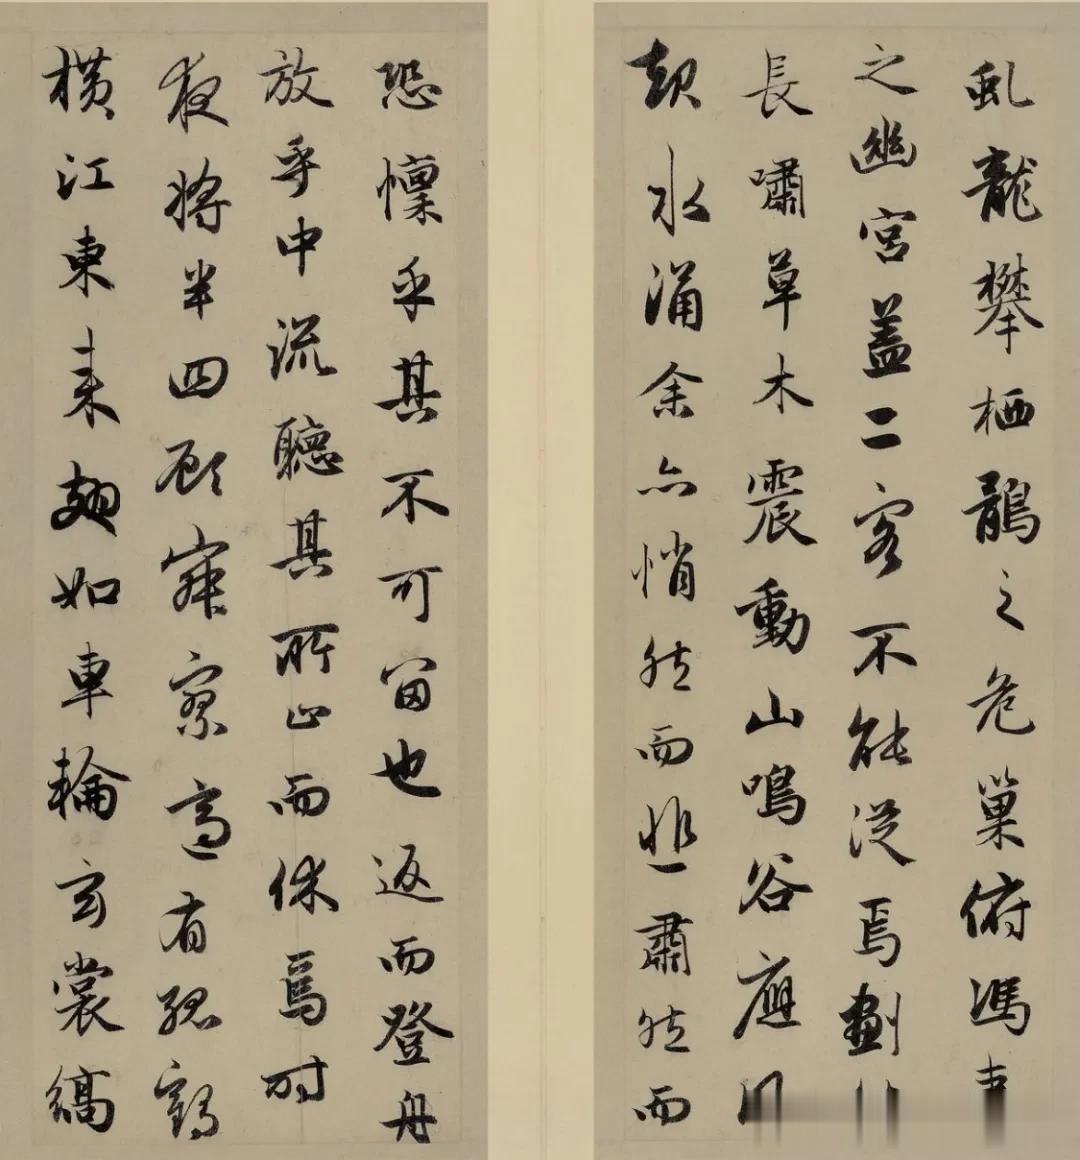 虬龍攀栖鶻之危巢俯馮
之幽宮蓋二客不能從焉劃
長嘯草木震動山鳴谷應
起水涌余亦悄然而悲肅然而
恐懍乎其不可留也返而登舟
放乎中流聽其所止而休焉時
夜將半四顧寂寥適有孤鶴
橫江東来翅如車輪玄裳縞